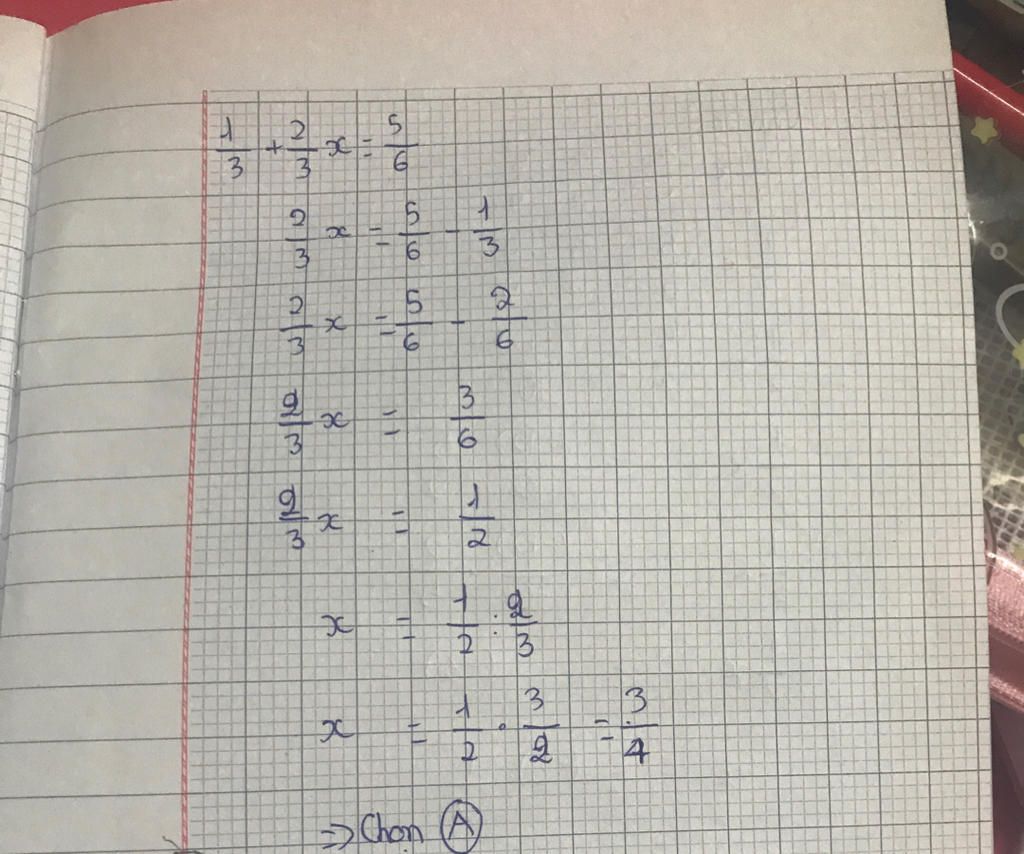 1/3 + 2/3 x = 5/6
2/3 x = 5/6 - 1/3
2/3 x = 5/6 - 2/6
2/3 x = 3/6
2/3 x = 1/2
x = 1/2 : 2/3
x = 1/2 . 3/2 = 3/4
=> Chọn A